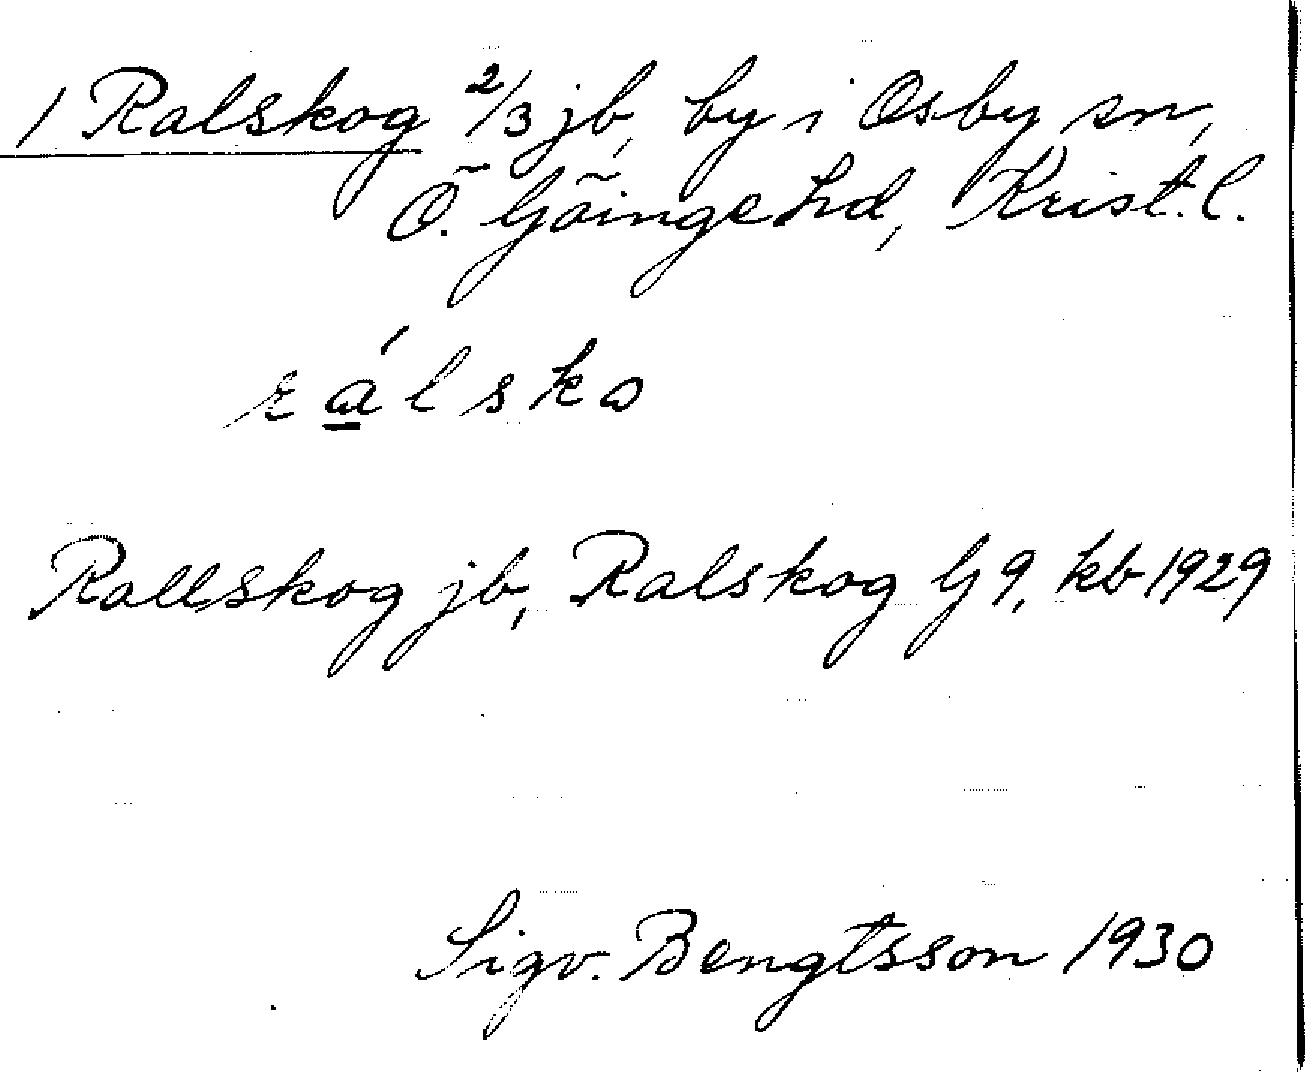 1 Ralskog 2/3 jb, by i Osby sn,
Ö. Göinge hd, Krist. l.
rálsko
Rallskog jb, Ralskog G9, kb 1929
Sigv. Bengtsson 1930